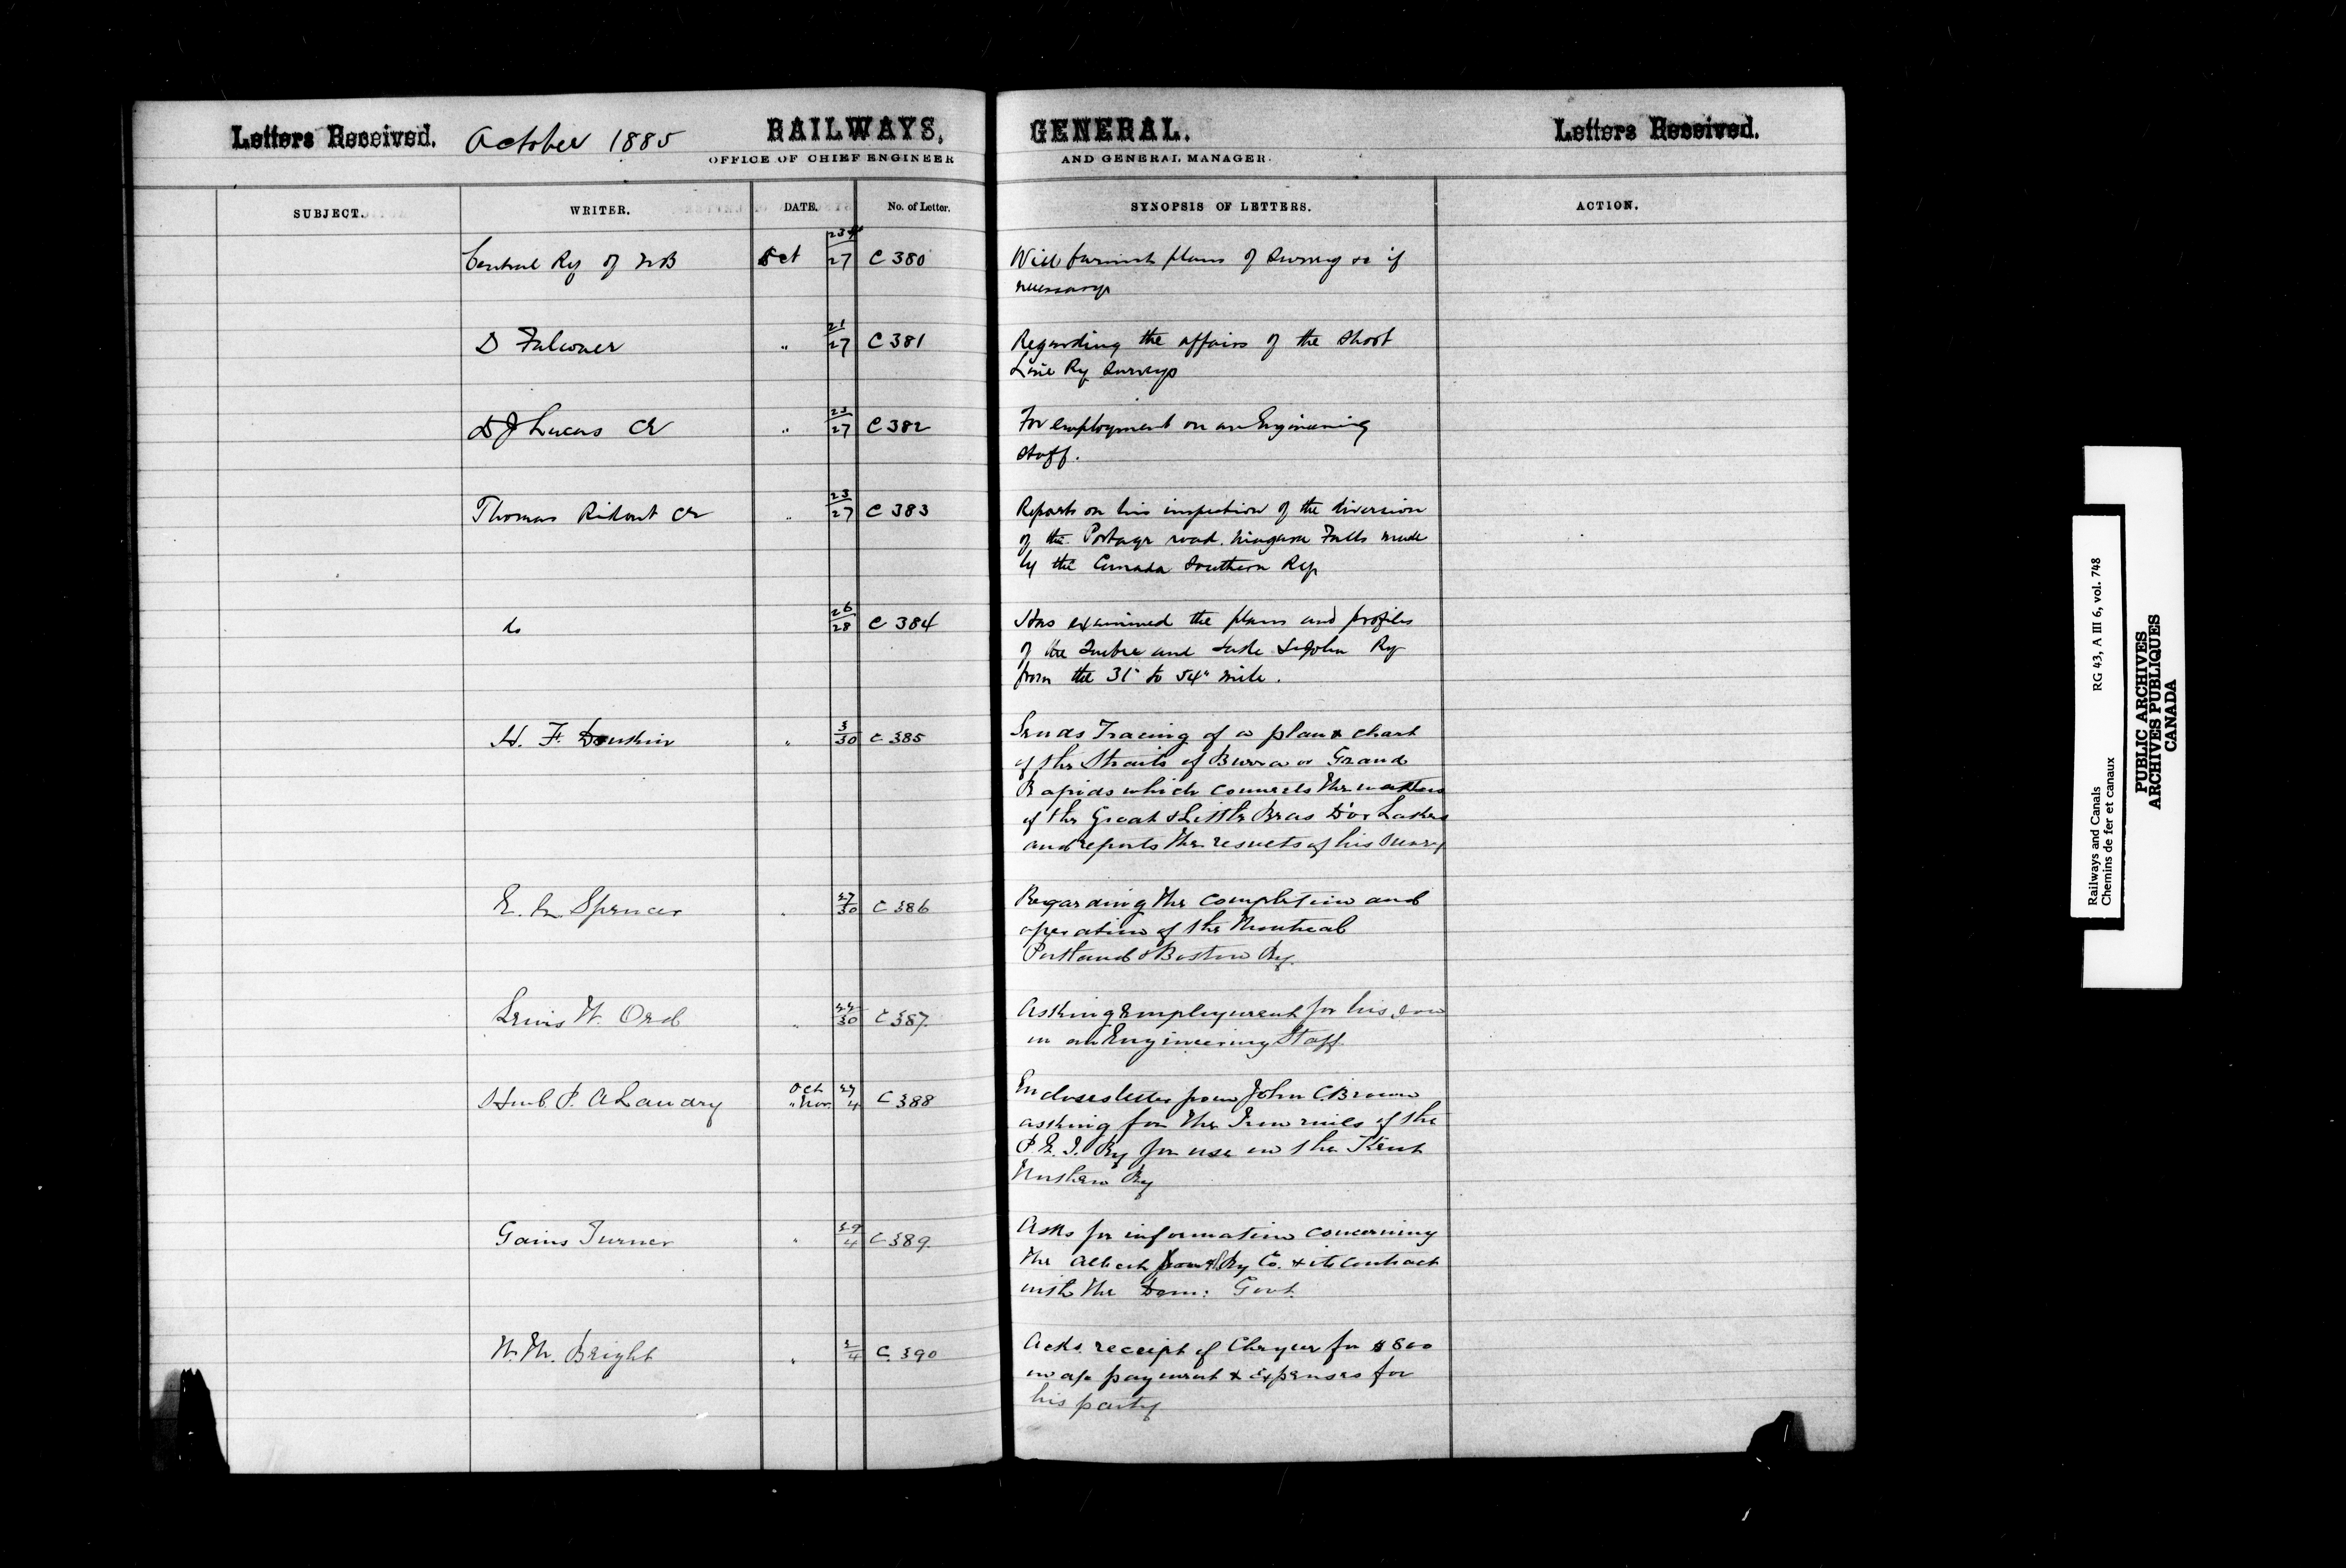 Letters Received. October 1885 RAILWAYS,
OFFICE OF CHIEF ENGINEER
GENERAL. Letters Received.
AND GENERAL MANAGER.
SUBJECT. WRITER. DATE. No. of Letter. SYNOPSIS OF LETTERS. ACTION.
Central Ry of NB Oct 23/27 C 380 Will furnish plans of Survey &c if
necessary
D Falconer " 21/27 C 381 Regarding the affairs of the Short
Line Ry Surveys
D J Lucas CE " 23/27 C 382 For employment on an Engineering
Staff.
Thomas Ridout CE " 23/27 C 383 Reports on his inspection of the diversion
of the Portage road. Niagara Falls made
by the Canada Southern Ry
do 26/28 C 384 Has examined the plans and profiles
of the Quebec and Lake St John Ry
from the 31" to 54" mile.
H. F. Donkin " 3/30 C 385 Sends Tracing of a plan & chart
of the Straits of Barra or Grand
Rapids which connects the waters
of the Great & Little Bras D'or Lakes
and reports the results of his Survey
Spencer " 27/30 C 386 Regarding the completion and
operation of the Montreal
Portland & Boston Ry.
Lewis W. Ord " /30 C 387 Asking Employment for his son
in an Engineering Staff
P. A Landry Oct 27
" Nov. 4 C 388 Encloses letter from John C. Brown
asking for the Iron rails of the
P. E. I. Ry for use in the Kent
Northern Ry
Gaius Turner " 29/4 C 389 Asks for information concerning
the Albert Ry Co. & its contract
with the Dom: Govt.
W. M. Bright " 2/4 C 390 Acks. receipt of Cheque for $800
in a/c payment & expenses for
his party
Railways and Canals RG 43, A III 6, vol. 748
Chemins de fer et canaux
PUBLIC ARCHIVES
ARCHIVES PUBLIQUES
CANADA